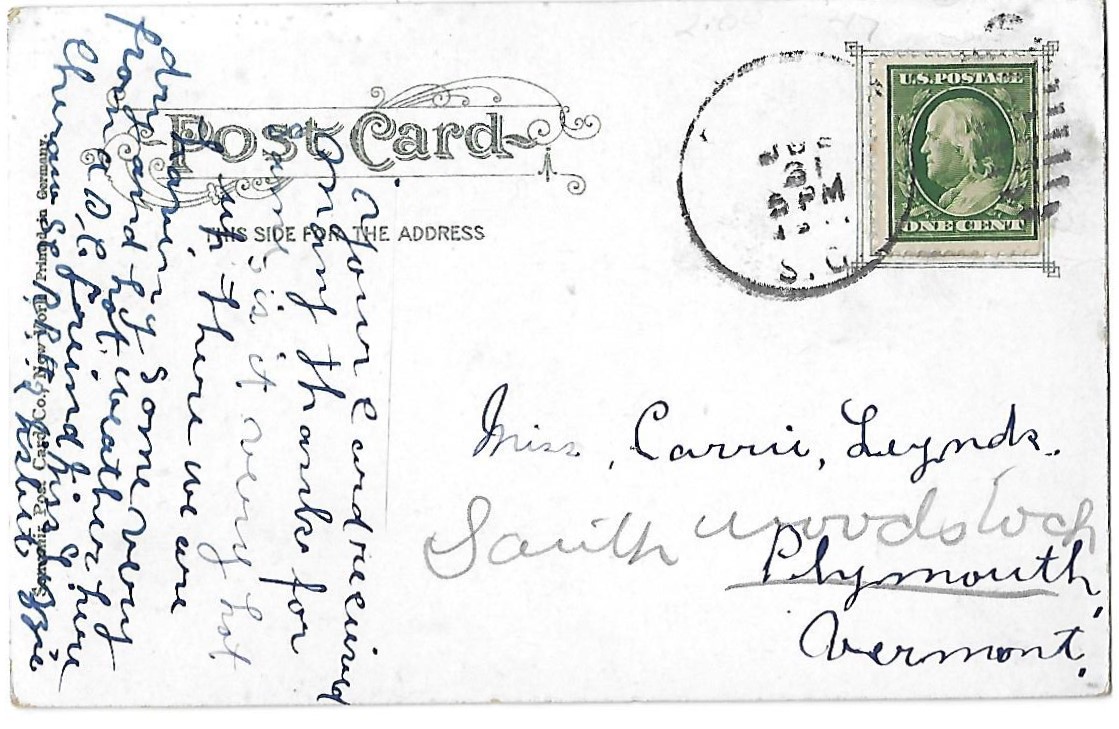 U.S. POSTAGE
ONE CENT
Post Card
THIS SIDE FOR THE ADDRESS
31
5 PM
S.C.
Miss, Carrie, Leynds.
South Woodstock
Plymouth,
Vermont.
Your Card recived
Many thanks for
Same is it very hot
up there we are
having some very
dry and hot weather hy
from a S.C. freind Miss Lizzie
Cheraw S.C.
Post Card Co., New York, Printed in Germany.